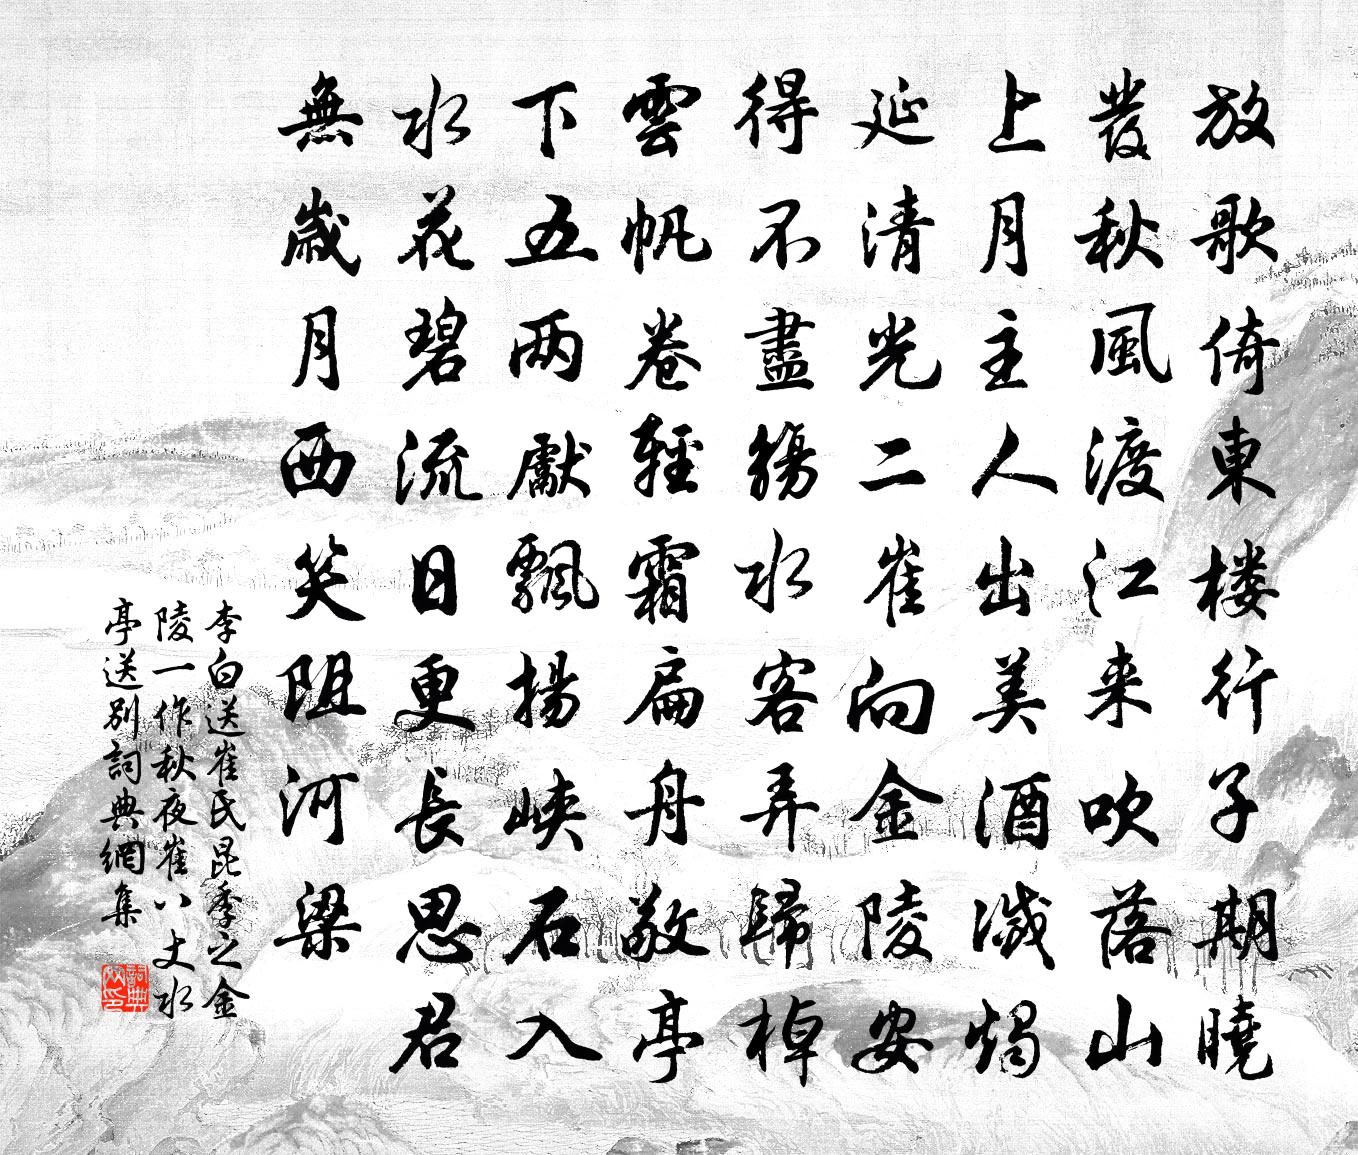 放歌倚東楼行子期曉
發秋風渡江来吹落山
上月主人出美酒滅燭
延清光二崔向金陵安
得不盡觴水客弄歸棹
雲帆卷輕霜扁舟敬亭
下五两獻飄揚峽石入
水花碧流日更長思君
無歲月西笑阻河梁
李白送崔氏昆季之金
陵一作秋夜崔八丈水
亭送別詞典網集
詞典
网印